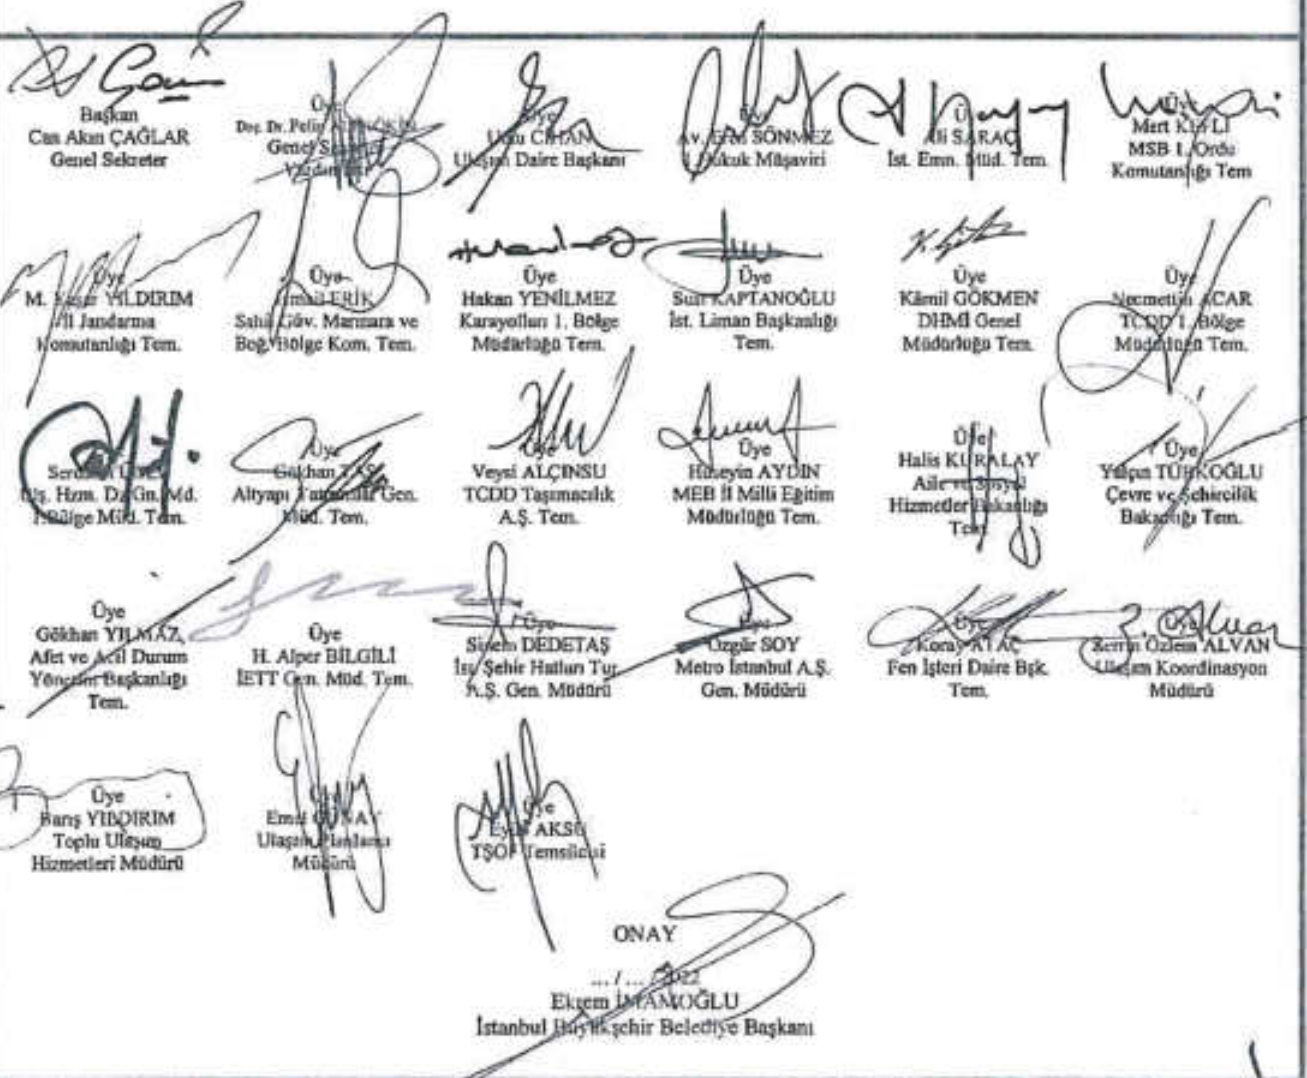 Başkan
Can Akın ÇAĞLAR
Genel Sekreter
Üye
Doç. Dr. Pelin
Genel
Üye
Utku CİHAN
Ulaşım Daire Başkanı
Av. SÖNMEZ
Hukuk Müşaviri
Ali SARAÇ
İst. Emn. Müd. Tem.
Üye
Mert
MSB 1. Ordu
Komutanlığı Tem
Üye
M. Yaşar YILDIRIM
İl Jandarma
Komutanlığı Tem.
Üye
İsmail ERİK
Sahil Güv. Marmara ve
Boğ. Bölge Kom. Tem.
Üye
Hakan YENİLMEZ
Karayolları 1. Bölge
Müdürlüğü Tem.
Üye
KAPTANOĞLU
İst. Liman Başkanlığı
Tem.
Üye
Kâmil GÖKMEN
DHMİ Genel
Müdürlüğü Tem.
Üye
Necmettin ACAR
TCDD 1. Bölge
Müdürlüğü Tem.
Ulş. Hzm. D. Gn. Md.
1. Bölge Müd. Tem.
Üye
Gökhan TAŞ
Altyapı Yatırımlar Gen.
Müd. Tem.
Üye
Veysi ALÇINSU
TCDD Taşımacılık
A.Ş. Tem.
Üye
Hüseyin AYDIN
MEB İl Milli Eğitim
Müdürlüğü Tem.
Üye
Halis KURALAY
Aile ve Sosyal
Hizmetler Bakanlığı
Tem.
Üye
Yalçın TÜRKOĞLU
Çevre ve Şehircilik
Bakanlığı Tem.
Üye
Gökhan YILMAZ
Afet ve Acil Durum
Yönetim Başkanlığı
Tem.
Üye
H. Alper BİLGİLİ
İETT Gen. Müd. Tem.
Üye
Sinem DEDETAŞ
İst. Şehir Hatları Tur.
A.Ş. Gen. Müdürü
Üye
Özgür SOY
Metro İstanbul A.Ş.
Gen. Müdürü
Üye
Koray ATAÇ
Fen İşleri Daire Bşk.
Tem.
Üye
Özlem ALVAN
Ulaşım Koordinasyon
Müdürü
Üye
Barış YILDIRIM
Toplu Ulaşım
Hizmetleri Müdürü
Üye
GÜNAY
Ulaşım Planlama
Müdürü
Üye
Eyüp AKSU
TŞOF Temsilcisi
ONAY
... / ... / 2022
Ekrem İMAMOĞLU
İstanbul Büyükşehir Belediye Başkanı